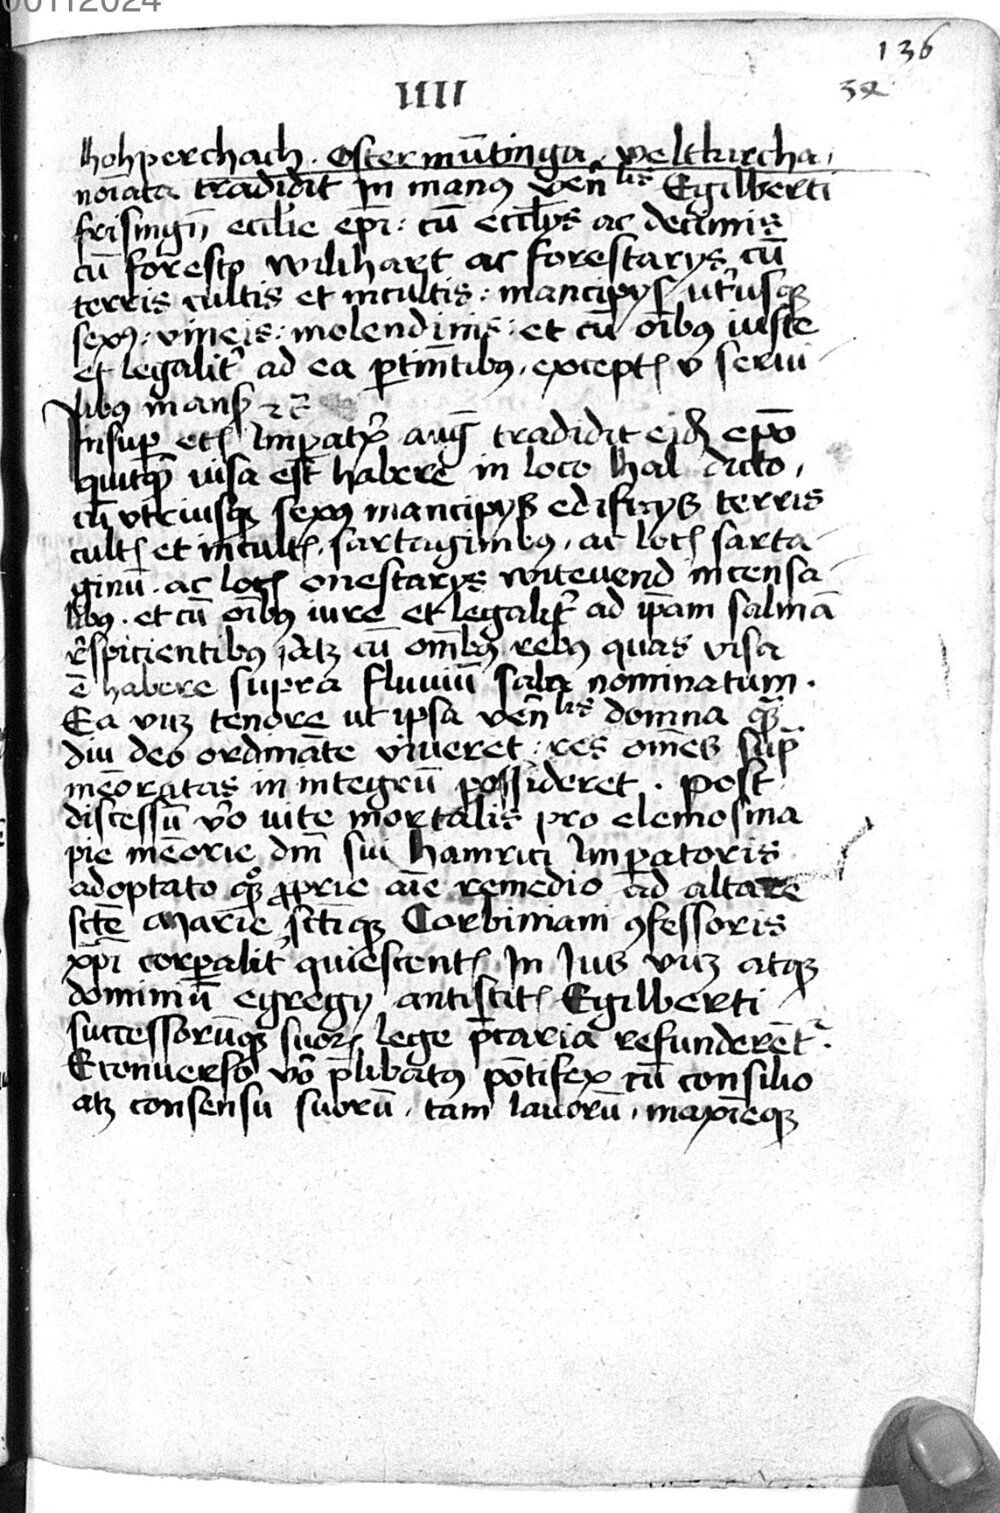 00112024
136
32
IIII
hohperchach . Ostermūtinga . veltkircha ,
noīata tradidit In manꝰ Veñlis Egilberti
frisingñ eccl̄ie ep̄i : cū eccl̄ys ac decimis
cū foresto wilihart ac forestarys cū
terris cultis et incultis : mancipys utˀusqꝫ
sexꝰ : vineis : molendinis : et cū oībꝰ iuste
et legalitˀ ad ea ꝑtinētibꝰ , exceptꝭ v serui
libꝰ mansꝭ ⁊ ꝛc̄
Insuꝑ etꝭ Imꝑatˀx aug̃ tradidit eidꝫ ep̄o
quitqͥd uisa est habere in loco Hal dicto ,
cū vtriusqꝫ sexꝰ mancipys edifitys terris
cultꝭ et incultꝭ , sartaginibꝰ , ac locꝭ sarta
ginū . ac locꝭ onestarys witeuend incensa
libꝰ . et cū oībꝰ iure et legalitˀ ad ip̄am salinā
rˀspicientibꝰ iatꝫ cū om̄ibꝰ rebꝰ quas visa
ē habere supra fluuiū sala nominatum .
Ea vıꝫ tenore ut ipsa veñlis domna qꝫ
diu deo ordināte viueret : res om̄es sup̄
mēoratas in integrū possideret . Post
discessū v̊o uite mortalis pro elemosina
pie mēorie dn̄i sui Hainrici Imꝑatoris
adoptato qꝫ ꝓprie aīe remedio ad altare
sctē Marie sctīqꝫ Corbiniani ꝯfessoris
xp̄i corꝑalitˀ quiescentꝭ In Ius vıꝫ atqꝫ
dominiū egregy antistitꝭ Egilberti
successorūqꝫ suoꝝ lege p̄caria refunderētˀ .
Econuerso v̊o p̄libatꝰ pōtifex cū consilio
atꝫ consensu suorū , tam laicorū , maxīeqꝫ